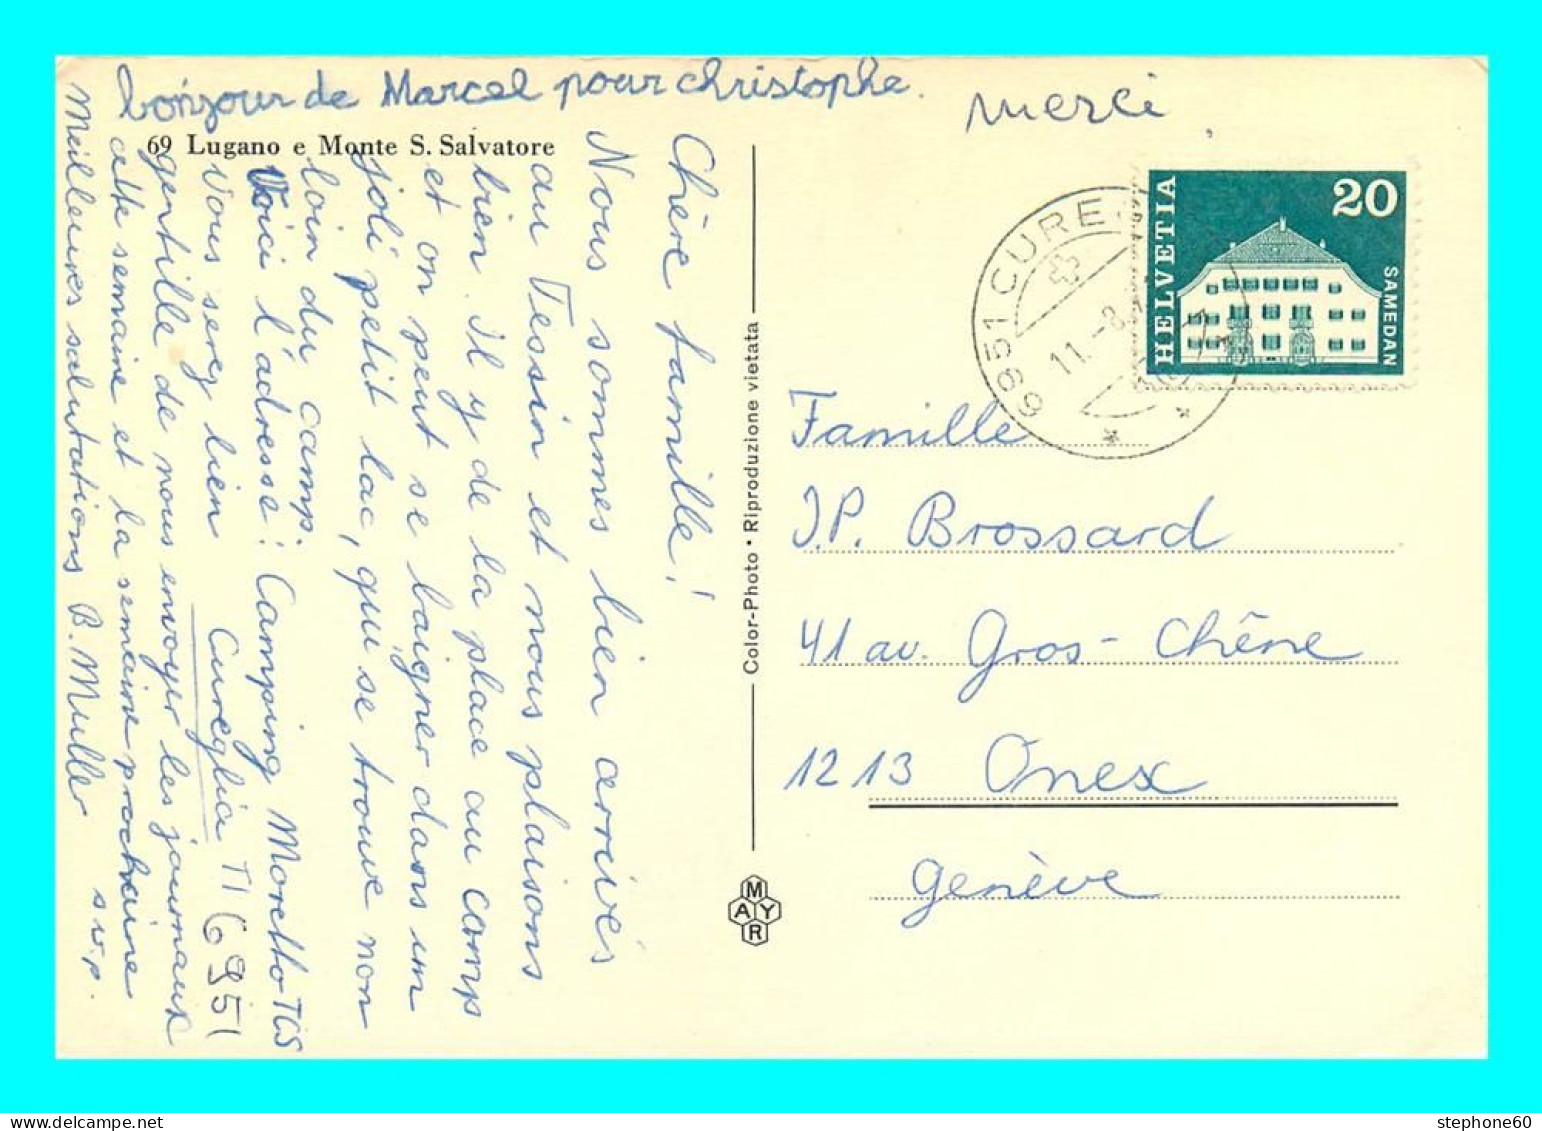 bonjour de Marcel pour christophe.
merci
69 Lugano e Monte S. Salvatore
Chère famille!
Nous sommes bien arrivés
au Tessin et nous plaisons
bien. Il y de la place au camp
et on peut se baigner dans un
joli petit lac, qui se trouve non
loin du camp.
Voici l'adresse: Camping Moretto TCS
Cureglia TI 6951
Vous serez bien
gentille de nous envoyer les journaux
cette semaine et la semaine prochaine
s.v.p.
Meilleures salutations B. Muller
Color-Photo • Riproduzione vietata
MAYR
6951 CURE
11.-8.
HELVETIA
20
SAMEDAN
Famille
J.P. Brossard
41 av. Gros-Chêne
1213 Onex
Genéve
stephone60